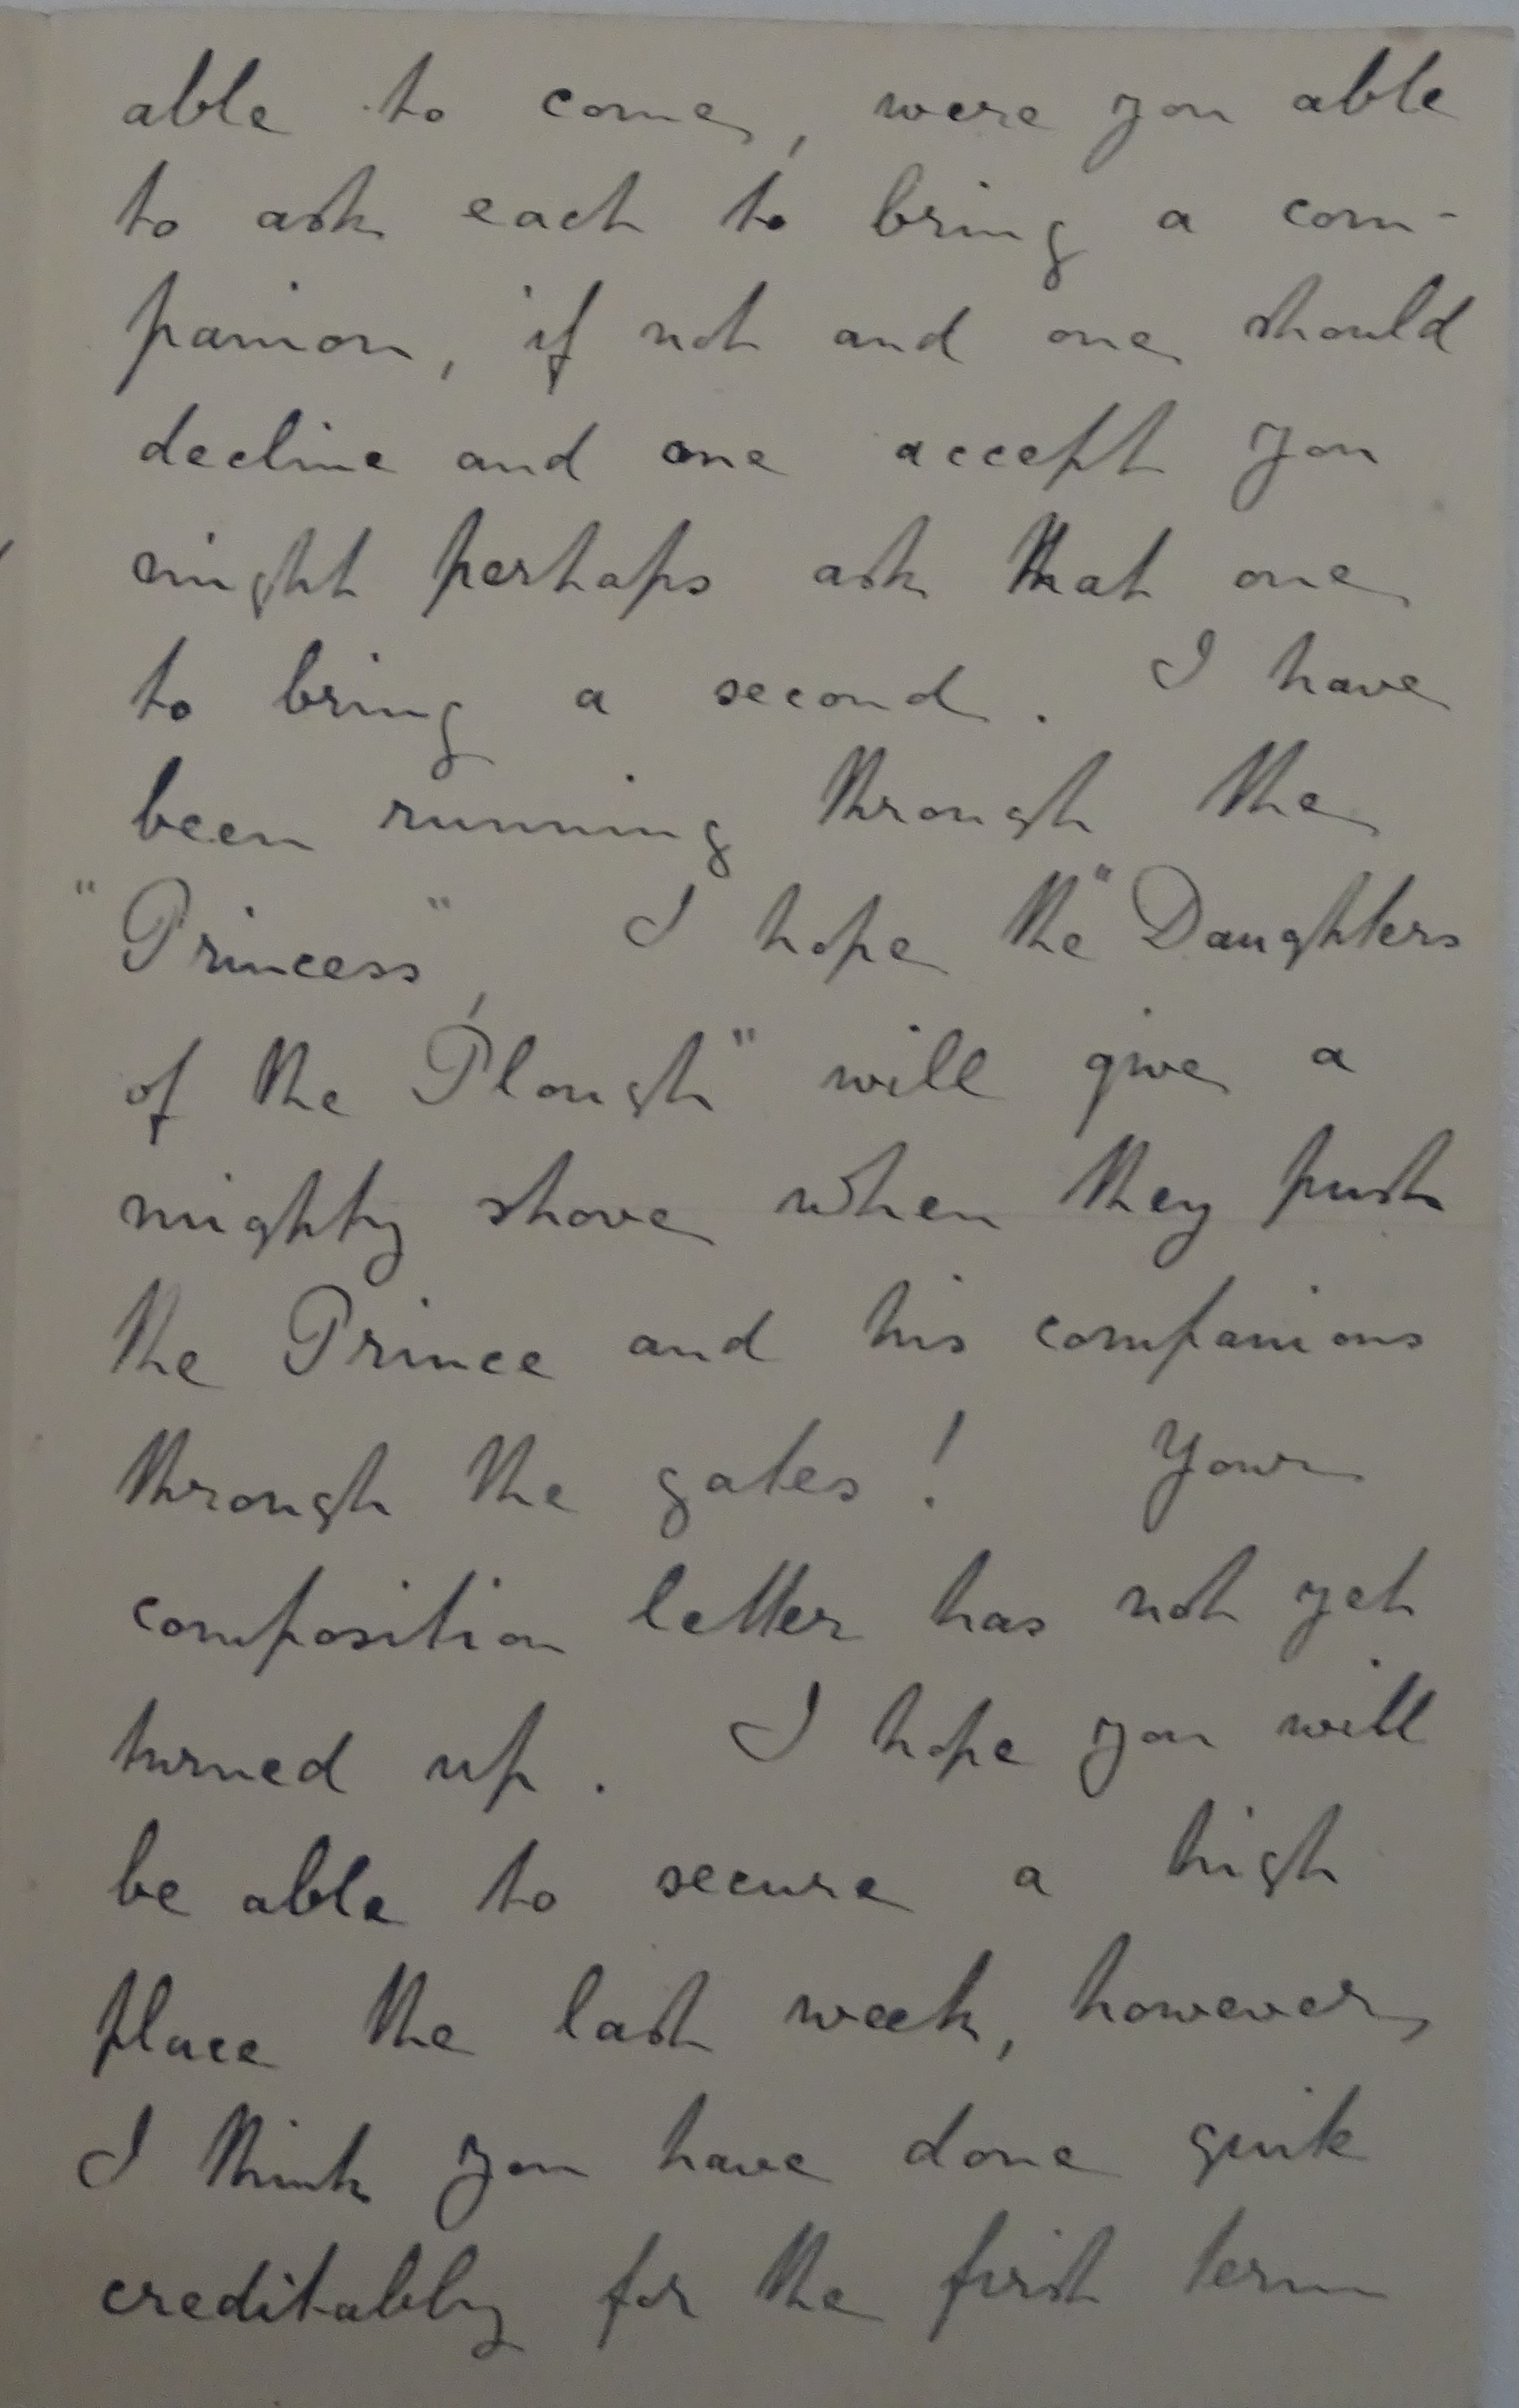 able to come, were you able
to ask each to bring a com-
panion, if not and one should
decline and one accept you
might perhaps ask that one
to bring a second. I have
been running through the
"Princess", I hope the "Daughters
of the Plough" will give a
mighty shove when they push
the Prince and his companions
through the gates! Your
composition letter has not yet
turned up. I hope you will
be able to secure a high
place the last week, however,
I think you have done quite
creditably for the first term